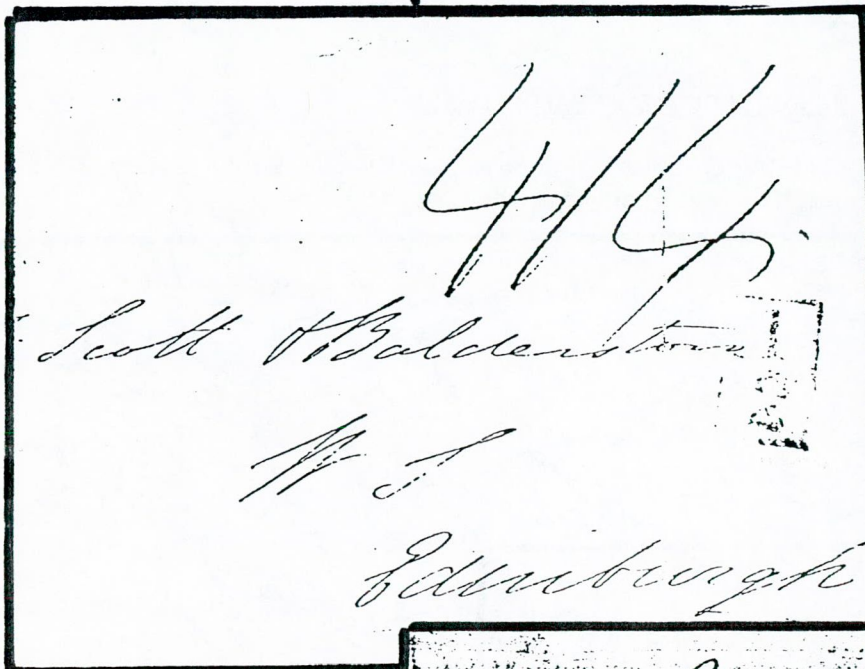 4/4
Scott & Balderstone
W S
Edinburgh